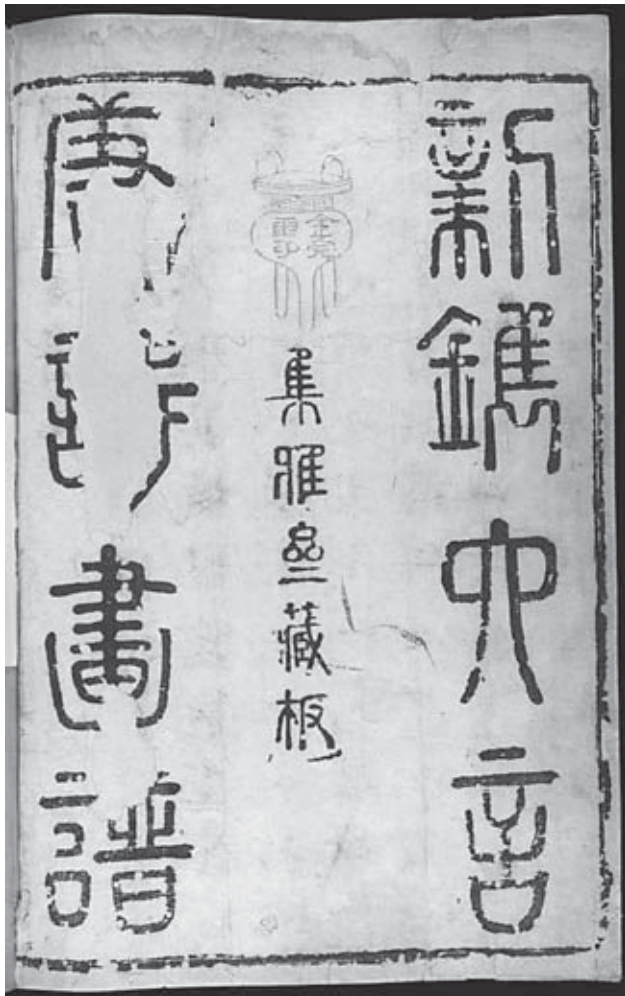 新鐫六言
集雅齋藏板
唐詩畫譜